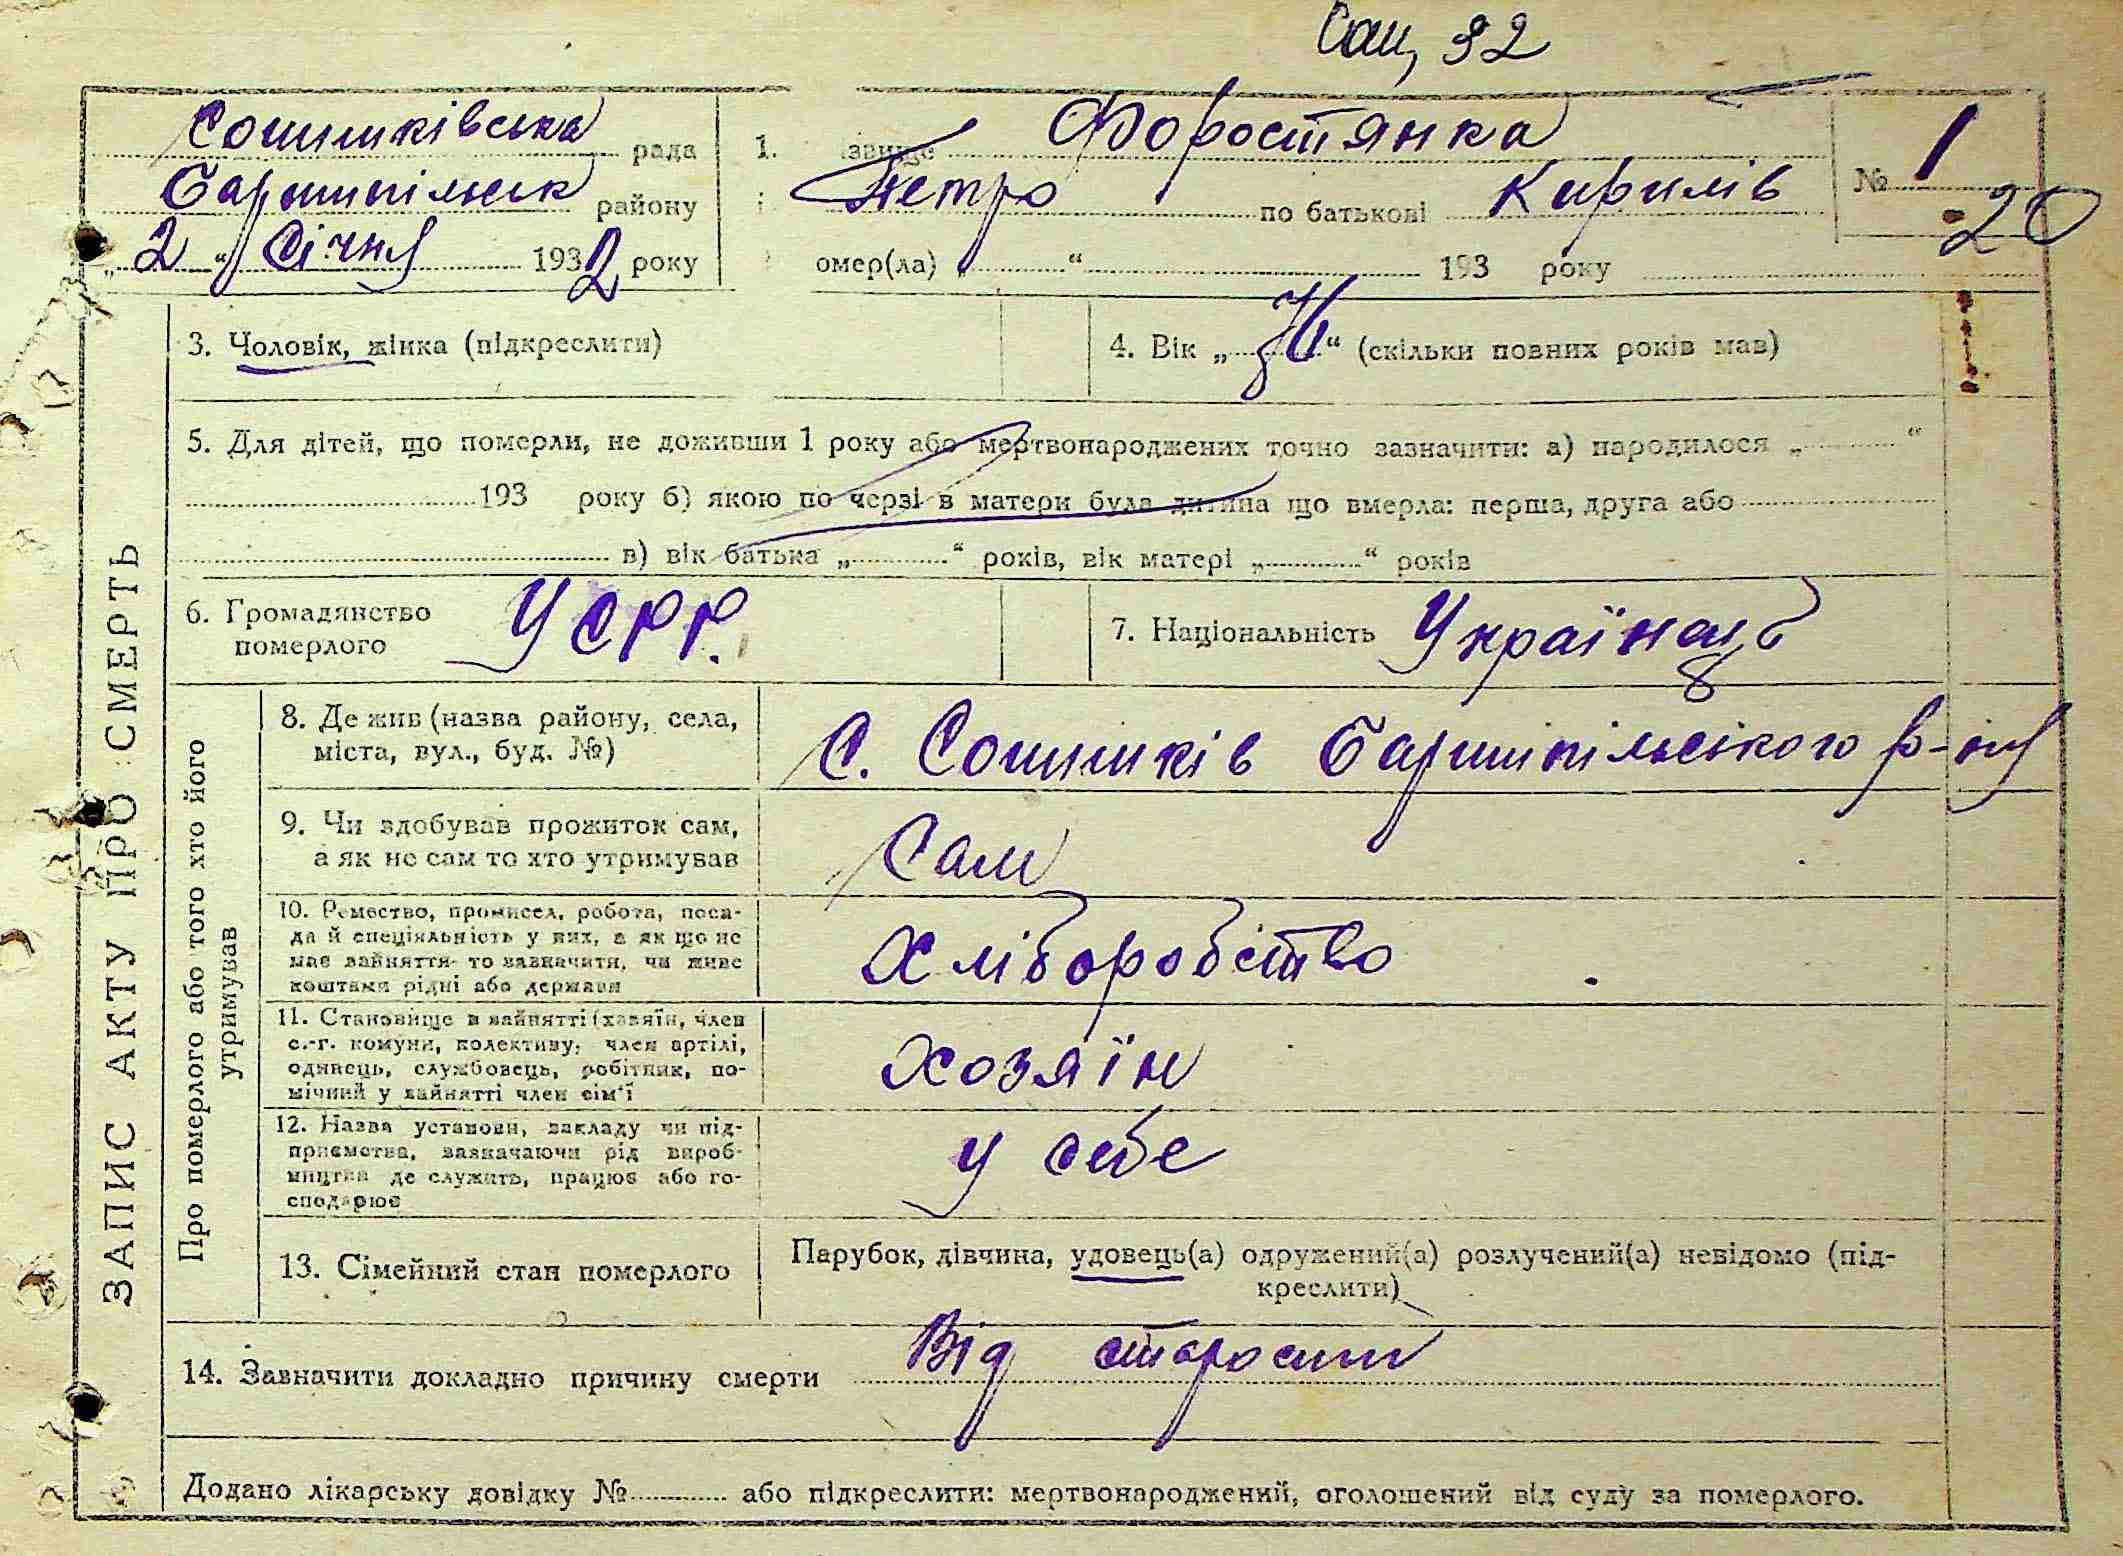 Сош, 32
Сошниківська рада
Баришпільськ району
„2“ Січня 1932 року
1. ізвище Форостянка
і Петро по батькові Кирилів
№ 1
20
омер(ла) „ “ 193 року
3. Чоловік, жінка (підкреслити)
4. Вік „76“ (скільки повних років мав)
5. Для дітей, що померли, не доживши 1 року або мертвонароджених точно зазначити: а) народилося „ “
193 року б) якою по черзі в матери була дитина що вмерла: перша, друга або
в) вік батька „ “ років, вік матері „ “ років
6. Громадянство
померлого
УСРР.
7. Національність Українець
ЗАПИС АКТУ ПРО СМЕРТЬ
Про померлого або того хто його
утримував
8. Де жив (назва району, села,
міста, вул., буд. №)
С. Сошників Баришпільського р-ну
9. Чи здобував прожиток сам,
а як не сам то хто утримував
Сам
10. Ремество, промисел, робота, поса-
да й спеціяльність у них, а як що не
має зайняття то зазначити, чи живе
коштами рідні або держави
Хліборобство
11. Становище в зайнятті (хазяїн, член
с.-г. комуни, колективу, член артілі,
одинець, службовець, робітник, по-
мічний у зайнятті член сім'ї
Хозяїн
12. Назва установи, закладу чи під-
приємства, зазначаючи рід вироб-
ництва де служить, працює або го-
сподарює
у себе
13. Сімейний стан померлого
Парубок, дівчина, удовець(а) одружений(а) розлучений(а) невідомо (під-
креслити)
14. Зазначити докладно причину смерти Від старости
Додано лікарську довідку № або підкреслити: мертвонароджений, оголошений від суду за померлого.